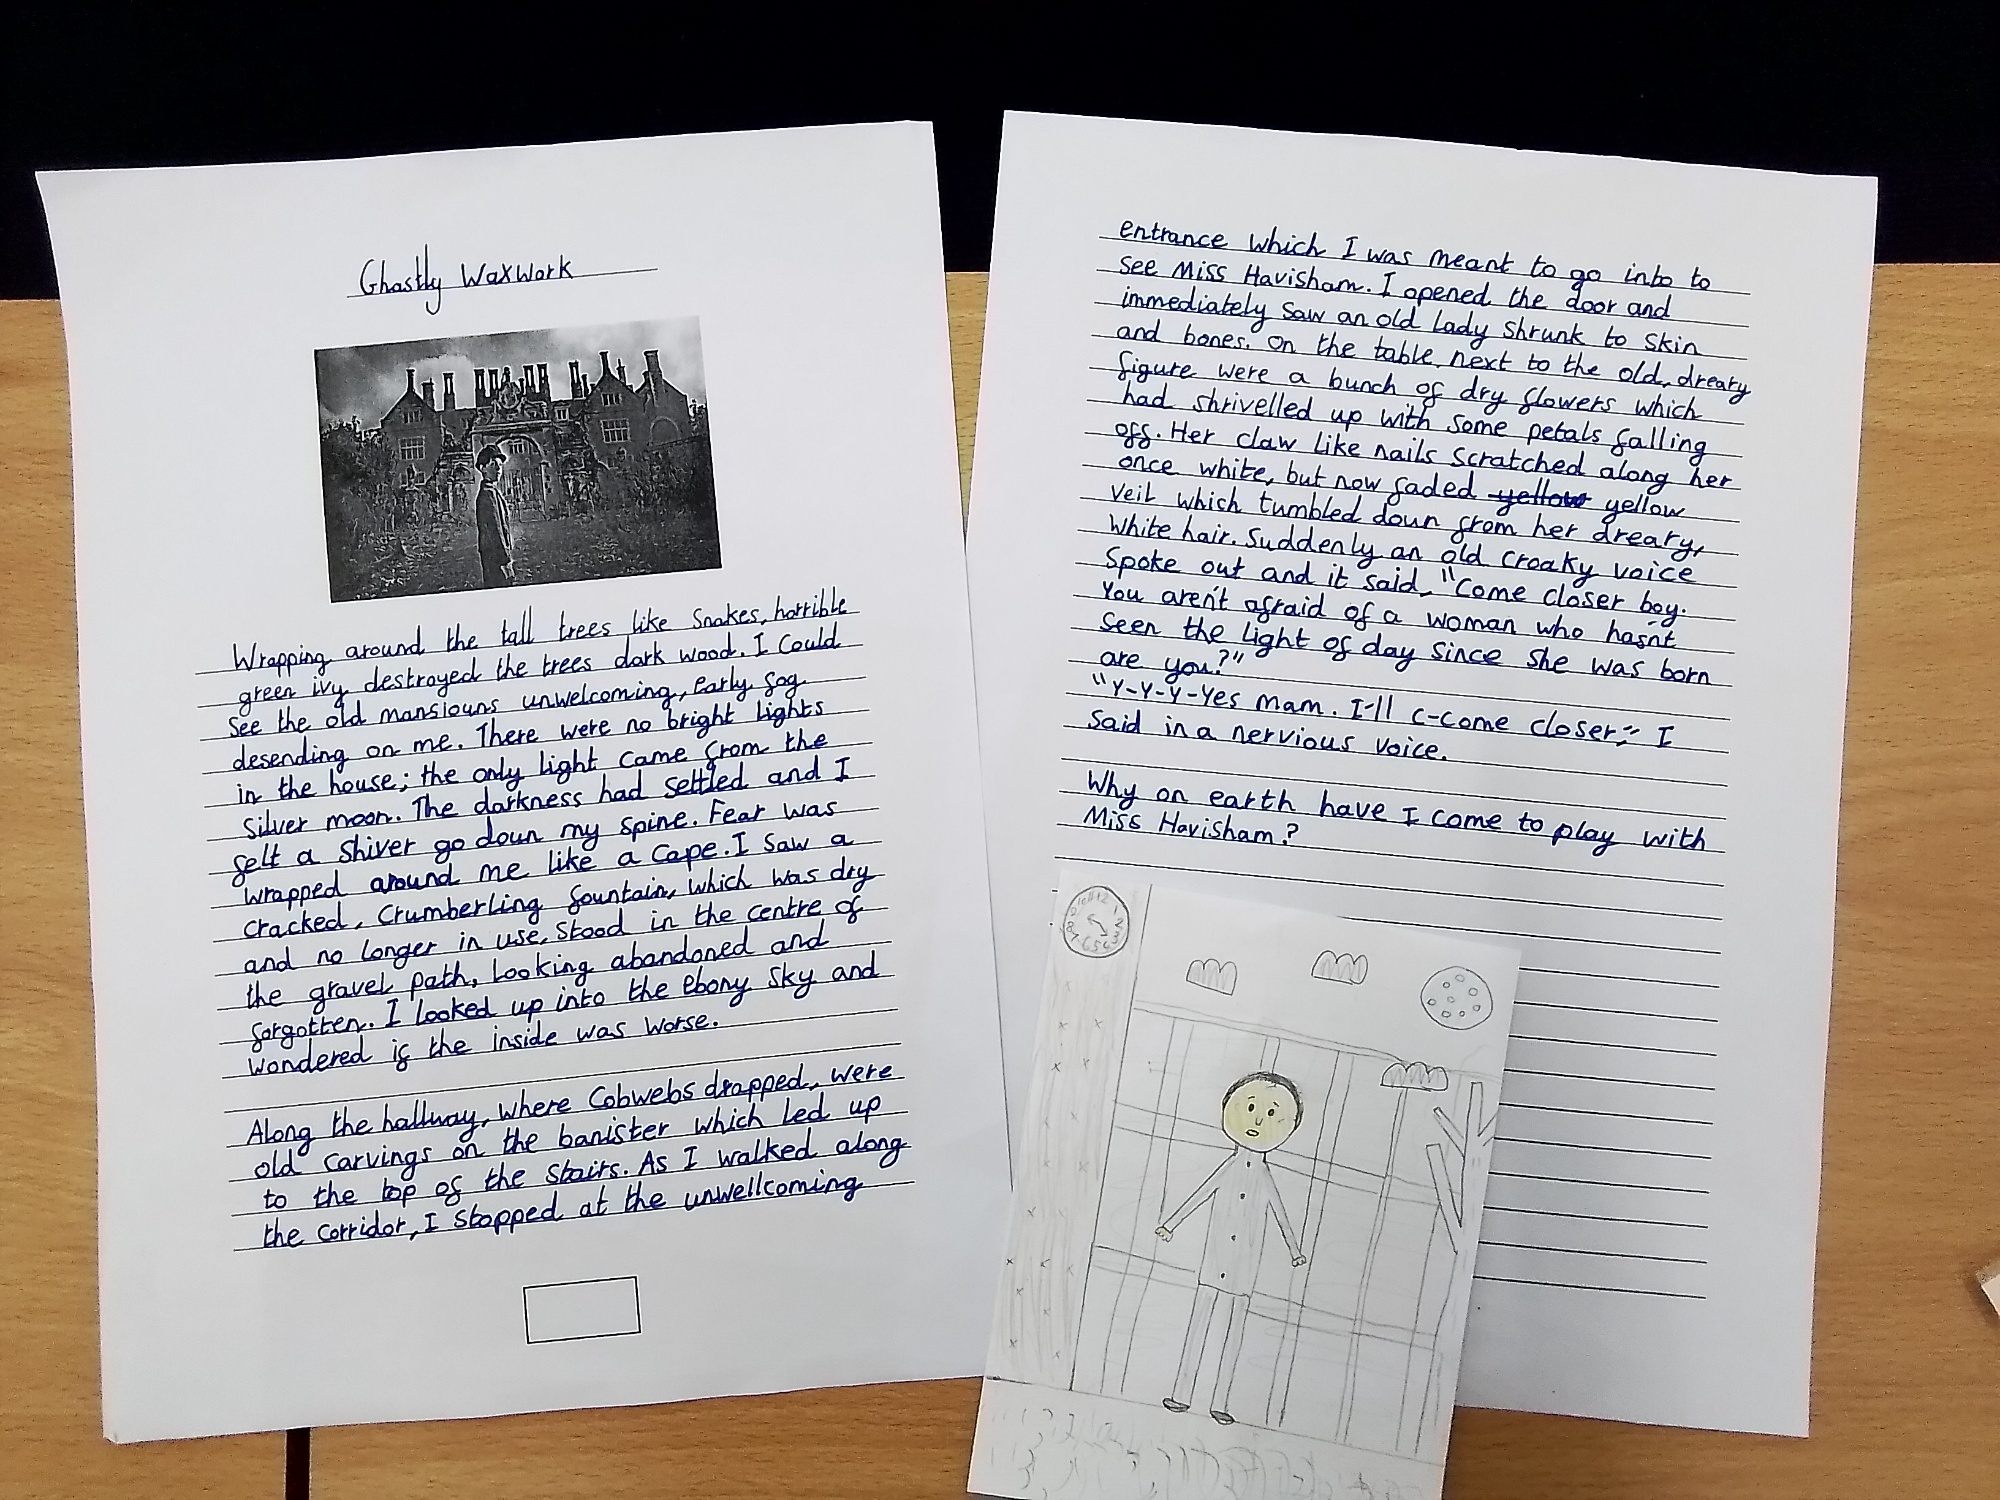 Ghastly Waxwork
Wrapping around the tall trees like snakes, horrible
green ivy destroyed the trees dark wood. I could
see the old mansiouns unwelcoming, early fog
desending on me. There were no bright lights
in the house; the only light came from the
silver moon. The darkness had settled and I
felt a shiver go doun my spine. Fear was
wrapped around me like a cape. I saw a
cracked, crumberling fountain, which was dry
and no longer in use, stood in the centre of
the gravel path, looking abandoned and
forgotten. I looked up into the ebony sky and
wondered if the inside was worse.
Along the hallway, where cobwebs drapped, were
old carvings on the banister which led up
to the top of the stairs. As I walked along
the corridor, I stopped at the unwellcoming
entrance which I was meant to go into to
see Miss Havisham. I opened the door and
immediately saw an old lady shrunk to skin
and bones. On the table, next to the old, dreary
figure were a bunch of dry flowers which
had shrivelled up with some petals falling
off. Her claw like nails scratched along her
once white, but now faded yellow yellow
veil which tumbled doun from her dreary,
white hair. Suddenly an old croaky voice
spoke out and it said, "Come closer boy.
You aren't afraid of a woman who hasn't
seen the light of day since she was born
are you?"
"Y-Y-Y-Yes mam. I-ll c-come closer," I
said in a nervious voice.
Why on earth have I come to play with
Miss Havisham?